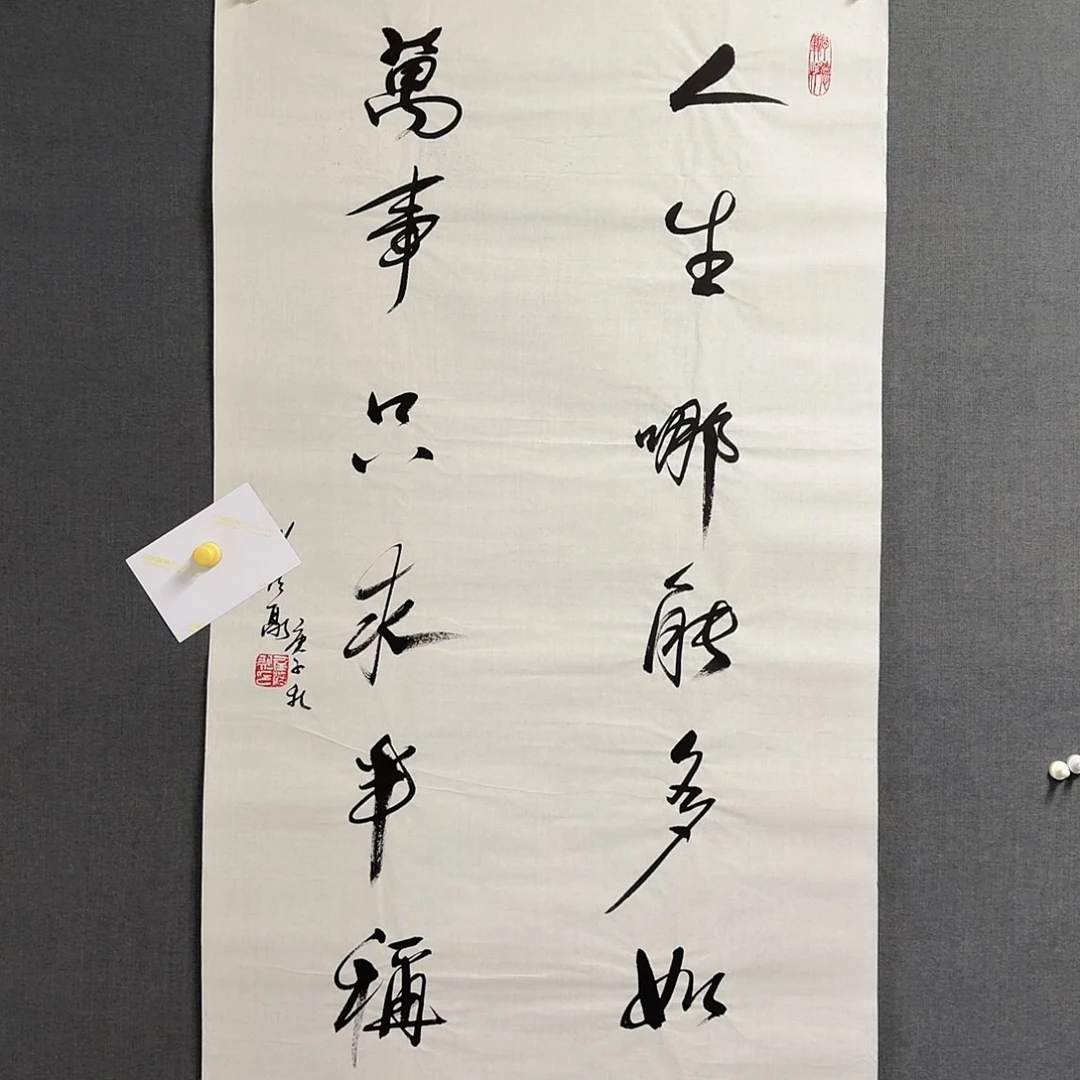 人生哪能多如
萬事只求半稱
庚子秋